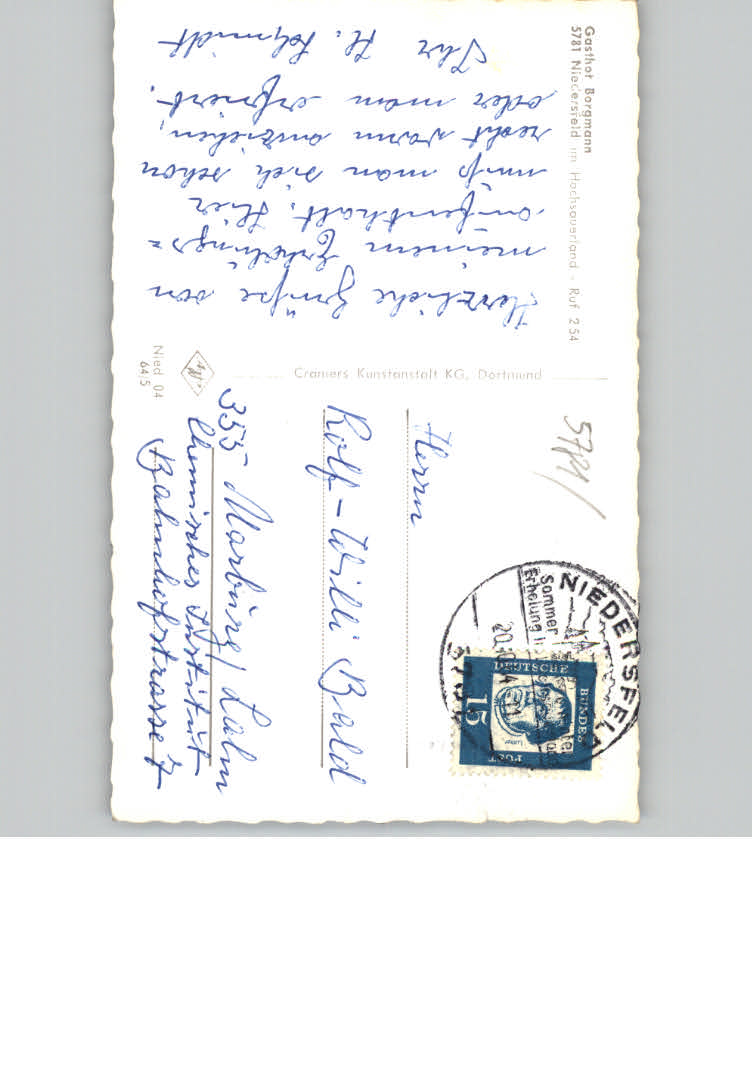 Gasthof Borgmann
5781 Niedersfeld im Hochsauerland - Ruf 254
Herzliche Grüße von
meinem Erholungs=
aufenthalt. Hier
muß man sich schon
recht warm anziehen,
oder man erfriert.
Ihr H. Schmidt
Nied 04
64/5
Cramers Kunstanstalt KG, Dortmund
5781/
NIEDERSFELD
Sommer
Erholung
DEUTSCHE
BUNDES
POST
15
Luther
Herrn
Rolf-Willi Bald
355 Marburg/Lahn
Chemisches Institut
Bahnhofstrasse 7